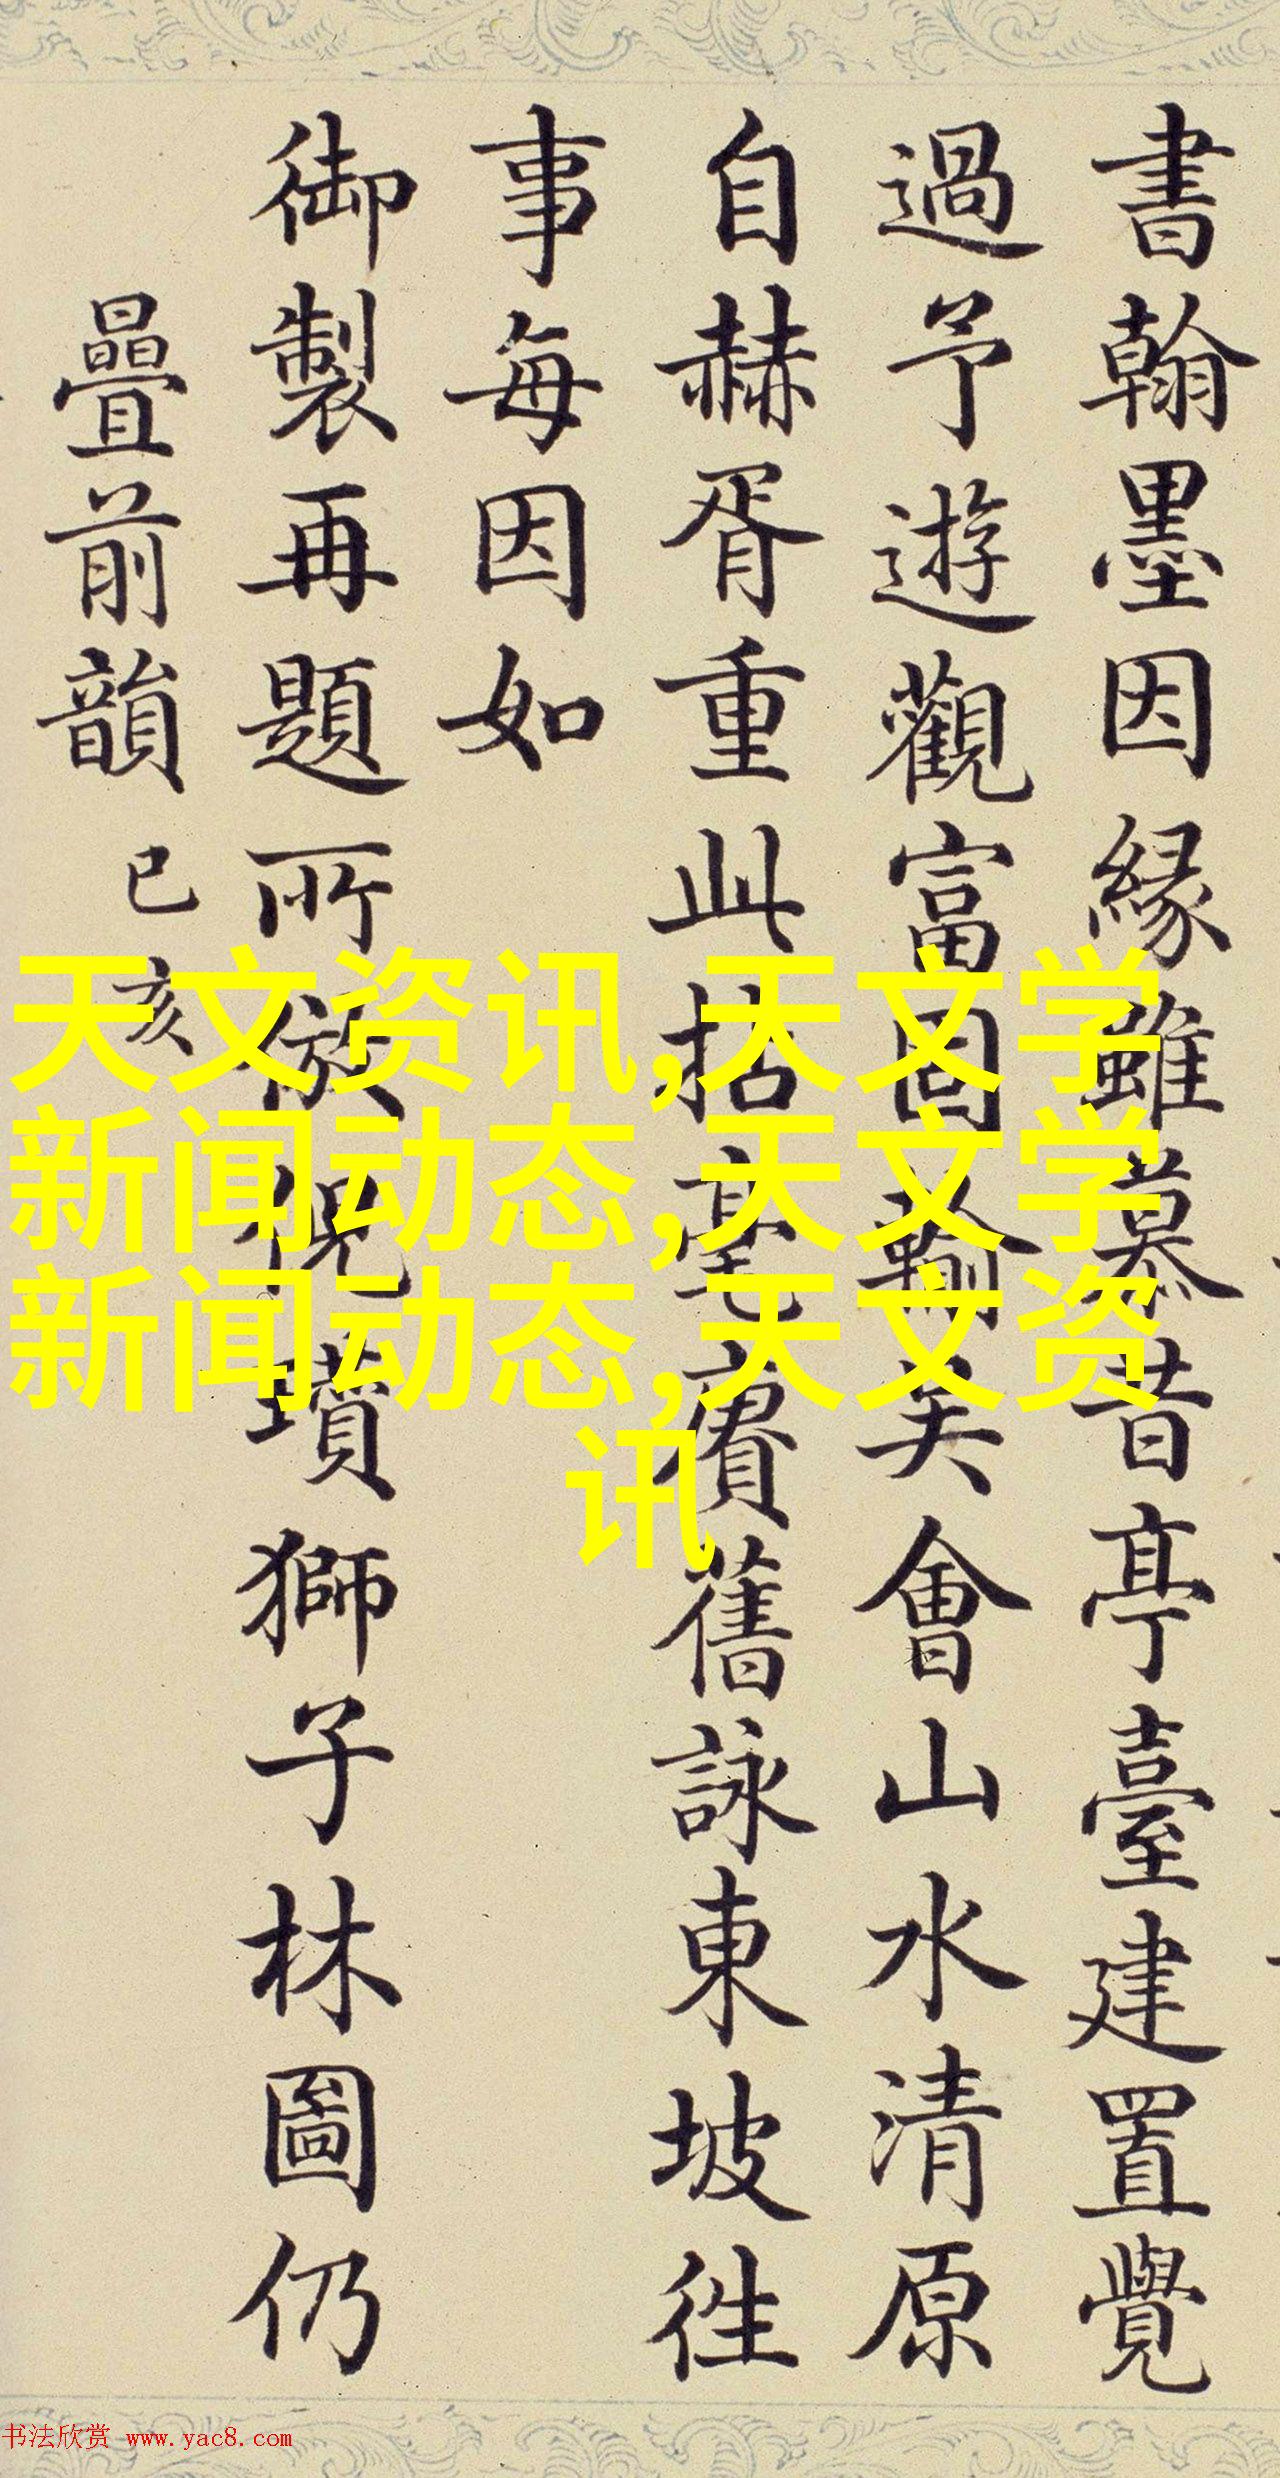 書翰墨因緣雖慕昔亭臺建置覺
過予遊觀富固輸矣會山水清原
自赫胥重此括臺賡舊詠東坡徃
事每因如
御製再題所倣倪瓚獅子林圖仍
疊前韻 己亥
天文资讯,天文学
新闻动态,天文学
新闻动态,天文资
讯
书法欣赏 www.yac8.com